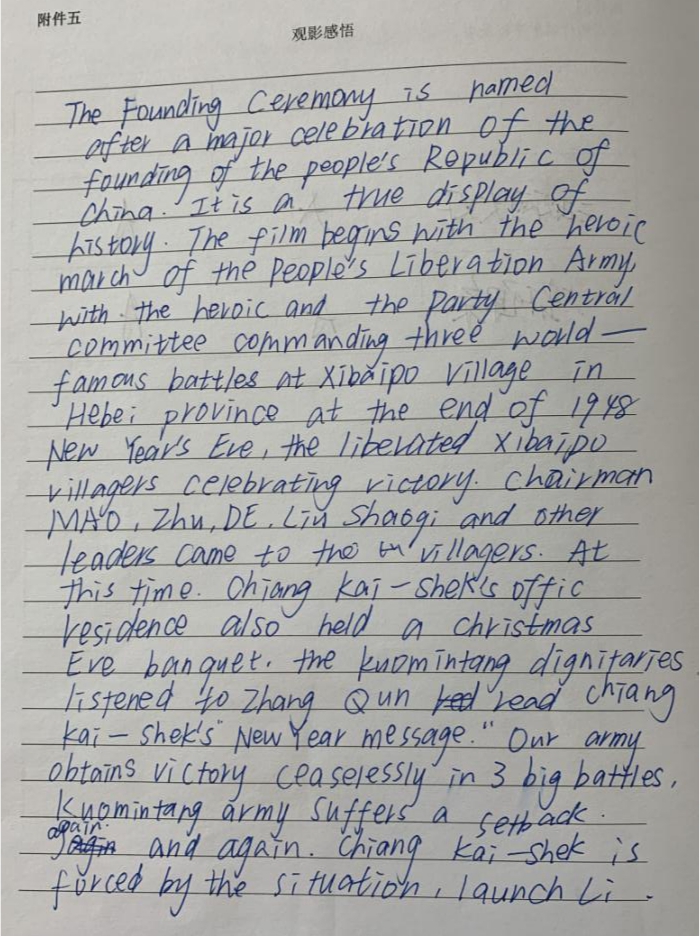 附件五
观影感悟
The Founding Ceremony is named
after a major celebration of the
founding of the people's Republic of
China. It is a true display of
history. The film begins with the heroic
march of the People's Liberation Army,
with the heroic and the party Central
committee commanding three world—
famous battles at Xibaipo village in
Hebei province at the end of 1948
New Year's Eve, the liberated Xibaipo
villagers celebrating victory. Chairman
MAO, Zhu, DE, Liu Shaoqi and other
leaders came to the villagers. At
this time. Chiang kai-shek's offic
residence also held a christmas
Eve banquet. the kuomintang dignitaries
listened to Zhang Qun read chiang
kai-shek's "New Year message." Our army
obtains victory ceaselessly in 3 big battles,
kuomintang army suffers a setback
again. and again. Chiang kai-shek is
forced by the situation, launch Li.